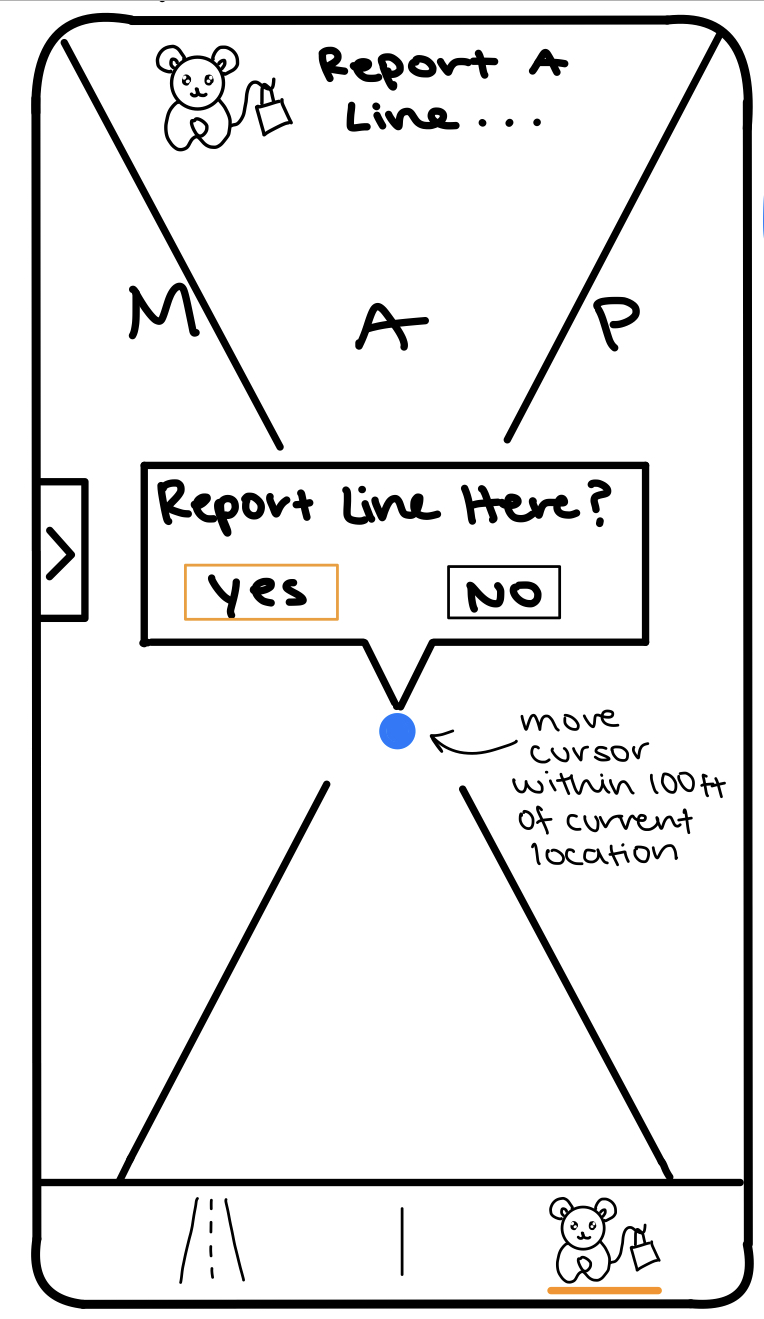 Report A
Line...
M A P
Report Line Here?
Yes
NO
move
cursor
within 100ft
of current
location